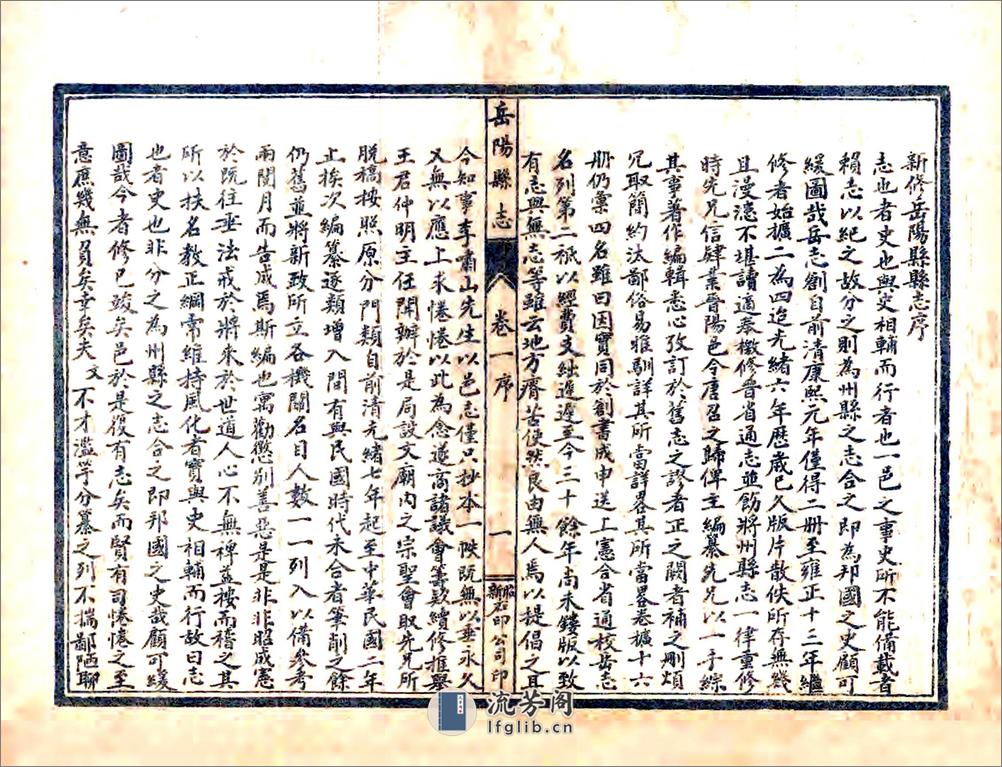 新修岳陽縣縣志序
志也者史也與史相輔而行者也一邑之事史所不能備載者
賴志以紀之故分之則為州縣之志合之即為邦國之史顧可
緩圖哉岳志創自前清康熙元年僅得二冊至雍正十三年繼
修者始擴二為四迨光緒六年歷歲已久版片散佚所存無幾
且漫漶不堪讀適奉檄修晉省通志並飭將州縣志一律重修
時先兄信肄業晉陽邑令唐召之歸俾主編纂先兄以一手綜
其事著作編輯悉心攷訂於舊志之謬者正之闕者補之刪煩
冗取簡約汰鄙俗易雅馴詳其所當詳畧其所當畧卷擴十六
册仍稟四名雖曰因實同於創書成申送上憲合省通校岳志
名列第二祇以經費支絀遲遲至今三十餘年尚未鏤版以致
有志與無志等雖云地方瘠苦使然良由無人焉以提倡之耳
岳陽縣志
卷一序
一
新石印公司印
今知事李嘯山先生以邑志僅只抄本一帙既無以垂永久
又無以應上求惓惓以此為念遂商諸議會籌欵續修推舉
王君仲明主任開辦於是局設文廟內之宗聖會取先兄所
脫稿按照原分門類自前清光緒七年起至中華民國二年
止挨次編纂逐類增入間有與民國時代未合者筆削之餘
仍舊並將新政所立各機關名目人數一一列入以備參考
兩閱月而告成焉斯編也寓勸懲別善惡是是非非昭成憲
於既往垂法戒於將來於世道人心不無裨益按而稽之其
所以扶名教正綱常維持風化者實與史相輔而行故曰志
也者史也非分之為州縣之志合之即邦國之史哉顧可緩
圖哉今者修已竣矣邑於是復有志矣而賢有司惓惓之至
意庶幾無負矣幸矣夫文不才濫竽分纂之列不揣鄙陋聊
流芳阁
lfglib.cn